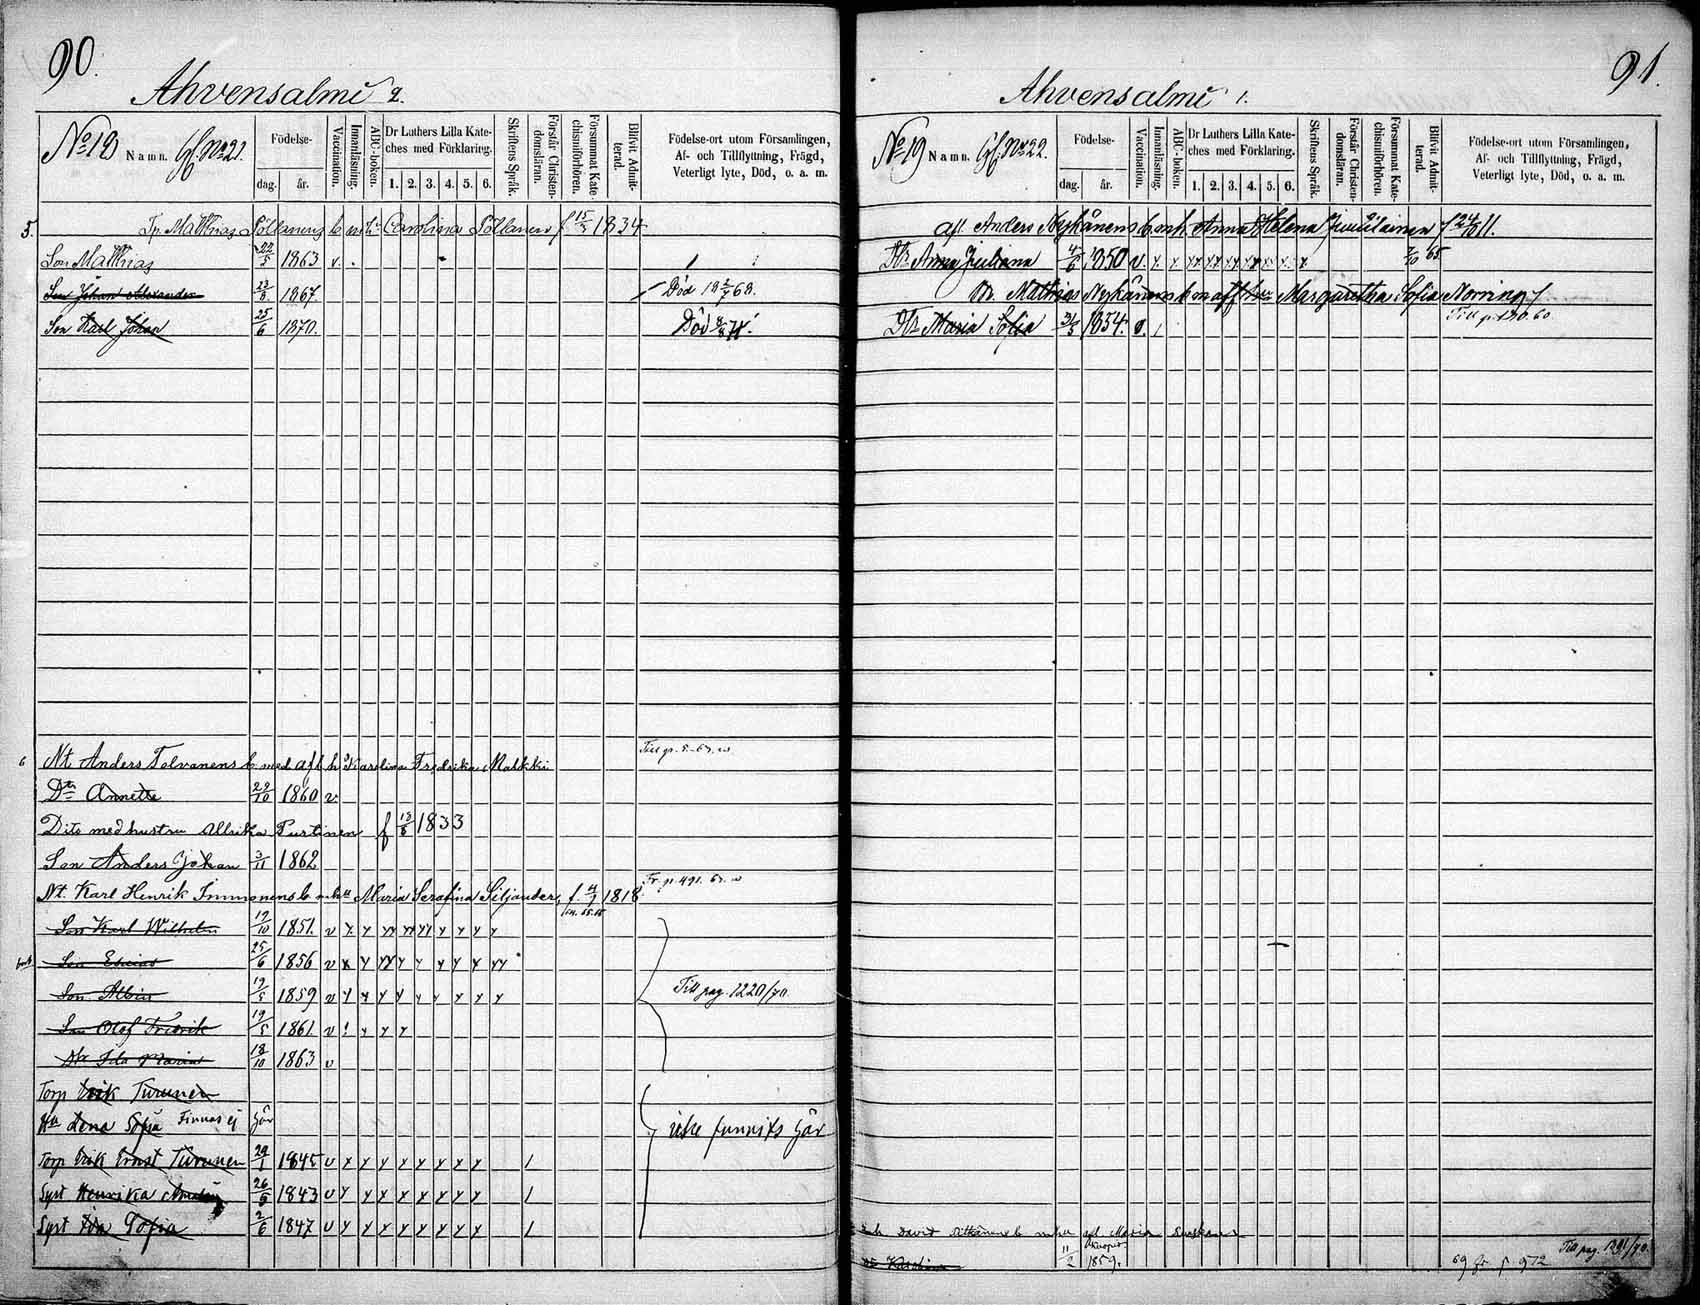 90.
Ahvensalmi 2.
No 18
Namn.
Cf. No 21.
Födelse-
dag.
år.
Vaccination.
Innanläsning.
ABC-boken.
Dr Luthers Lilla Kate-
ches med Förklaring.
1. 2. 3. 4. 5. 6.
Skriftens Språk.
Förstår Christen-
domsläran.
Försummat Kate-
chismiförhören.
Blifvit Admit-
terad.
Födelse-ort utom Församlingen,
Af- och Tillflyttning, Frägd,
Veterligt lyte, Död, o. a. m.
5. Tp. Matthias Tolvanens Carolina Tolvanen f 15/5 1834
Son Matthias 22/5 1863 v.
Son Johan Alexander 1867. Död
Son Karl Johan 25/6 1870. Död
6 Nt. Anders Tolvanens b. med afl. h. Karolina Fredrika Malkki
Dtr Annette 22/10 1860 v
Dito med hustru Ulrika Purtinen f 13/8 1833
Son Anders Johan 3/11 1862
Nt. Karl Henrik Immonens b. m. hu Maria Serafina Siljander, f. 4/7 1818 Fr. p. 491.
Son Karl Wilhelm 19/10 1851. v x y yy yy yy y y y y
Son 25/6 1856 v x y yy y y y y y yy
Son Albin 19/5 1859 v y y y y y y y y y Till pag. 1220/70
Son Olof Fredrik 19/5 1861 v y y y
Dtr Ida Maria 18/10 1863 v
Torp Erik Turunen
Hu Lena Sofia Finnas ej här
icke funnits här
Torp Erik Ernst Turunen 29/1 1845 v x x x x x x x x /
Syst Henrika 1843 v y y x x x x x x /
Syst Ida Sofia 2/6 1847 v y x x x x x x x /
91.
Ahvensalmi 1.
No 19
Namn.
Cf. No 22.
Födelse-
dag.
år.
Vaccination.
Innanläsning.
ABC-boken.
Dr Luthers Lilla Kate-
ches med Förklaring.
1. 2. 3. 4. 5. 6.
Skriftens Språk.
Förstår Christen-
domsläran.
Försummat Kate-
chismiförhören.
Blifvit Admit-
terad.
Födelse-ort utom Församlingen,
Af- och Tillflyttning, Frägd,
Veterligt lyte, Död, o. a. m.
afl. Anders Nykänens b. m. h. Anna Helena f 24/5 11.
Dtr Anna Juliana 4/6 1850 v. x x xx xx xx xx x x x 65
Br. Mathias Nykänens b. m. aff. hu Margaretha Sofia Norring
Dtr Maria Sofia 31/5 1854. v. / Till p. 130. 60
David b. m. hu afl. Maria
11/2 1859.
69 fr. p 972
Till pag. 1291/70.